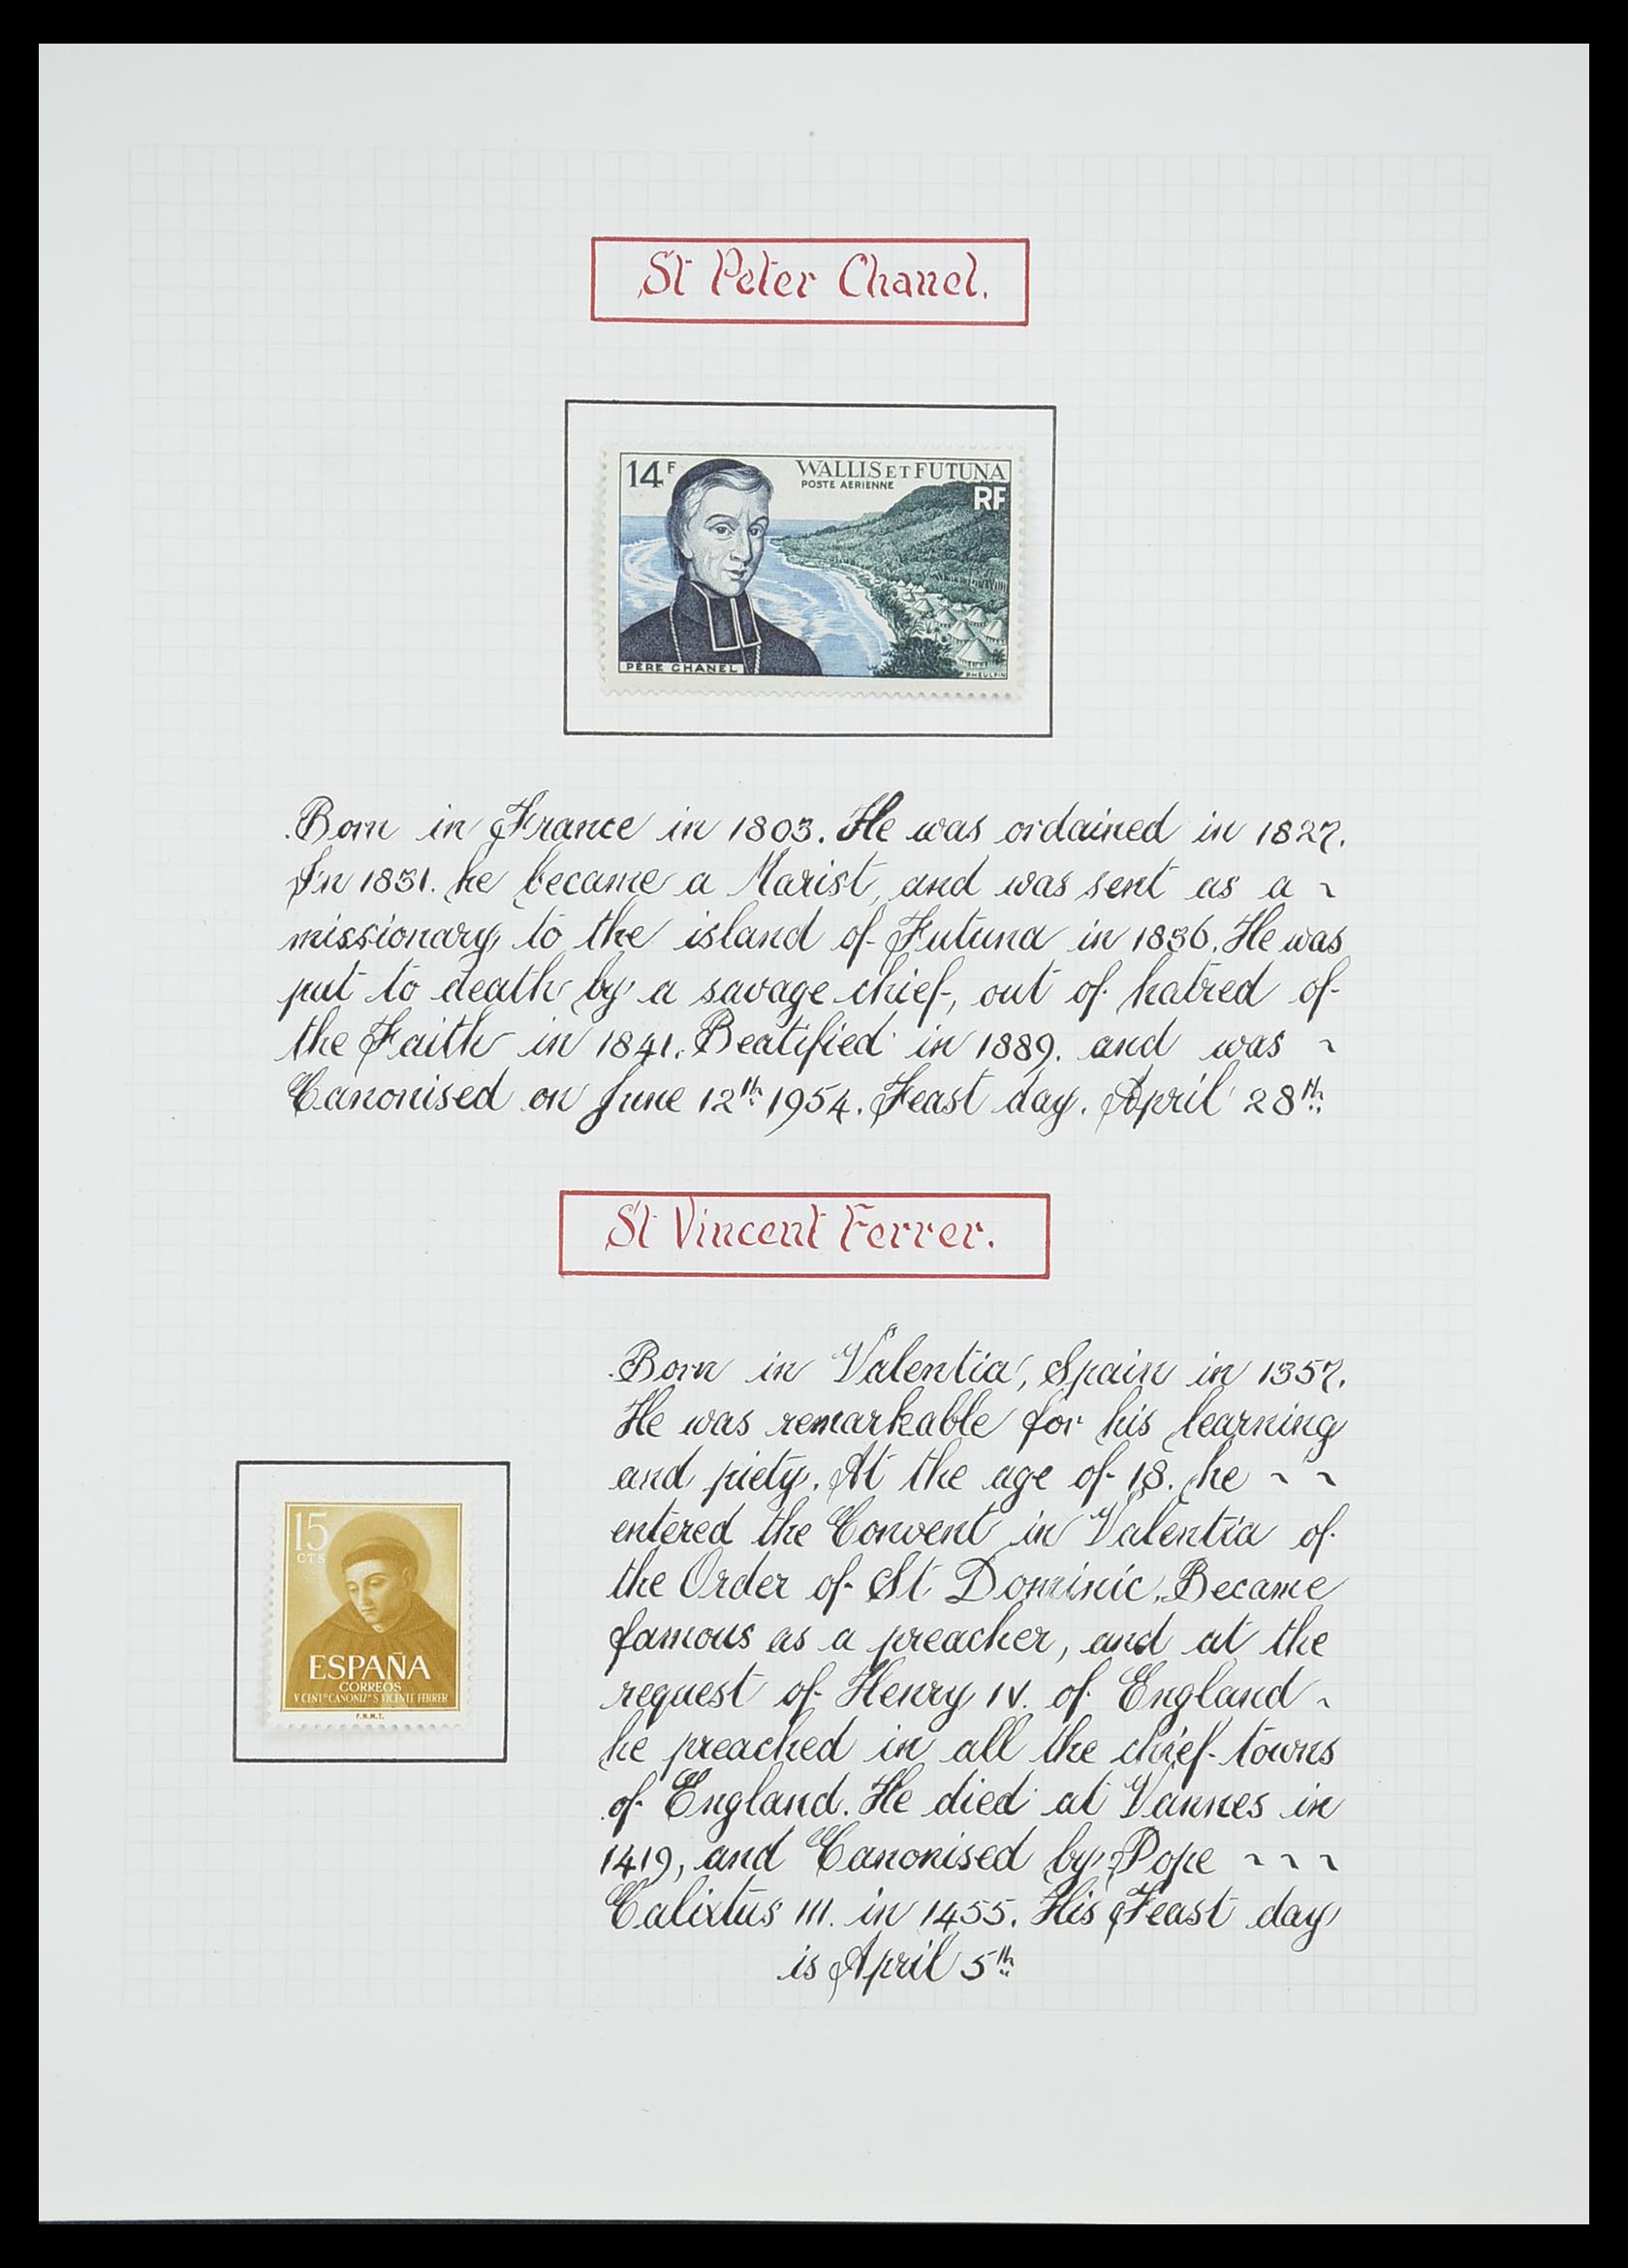 St Peter Chanel.
14F
WALLIS ET FUTUNA
POSTE AERIENNE
RF
PÈRE CHANEL
PHEULPIN
Born in France in 1803. He was ordained in 1827.
In 1831. he became a Marist, and was sent as a ~
missionary, to the island of Futuna in 1836. He was
put to death by a savage chief, out of hatred of
the Faith in 1841. Beatified in 1889. and was ~
Canonised on June 12th 1954. Feast day. April 28th
St Vincent Ferrer.
15
CTS
ESPAÑA
CORREOS
V CENTº CANONIZº S. VICENTE FERRER
F.N.M.T.
Born in Valentia, Spain in 1357.
He was remarkable for his learning
and piety. At the age of 18. he ~ ~
entered the Convent in Valentia of
the Order of St Dominic. Became
famous as a preacher, and at the
request of Henry IV. of England ~
he preached in all the chief towns
of England. He died at Vannes in
1419, and Canonised by Pope ~ ~ ~
Calixtus III. in 1455. His Feast day
is April 5th